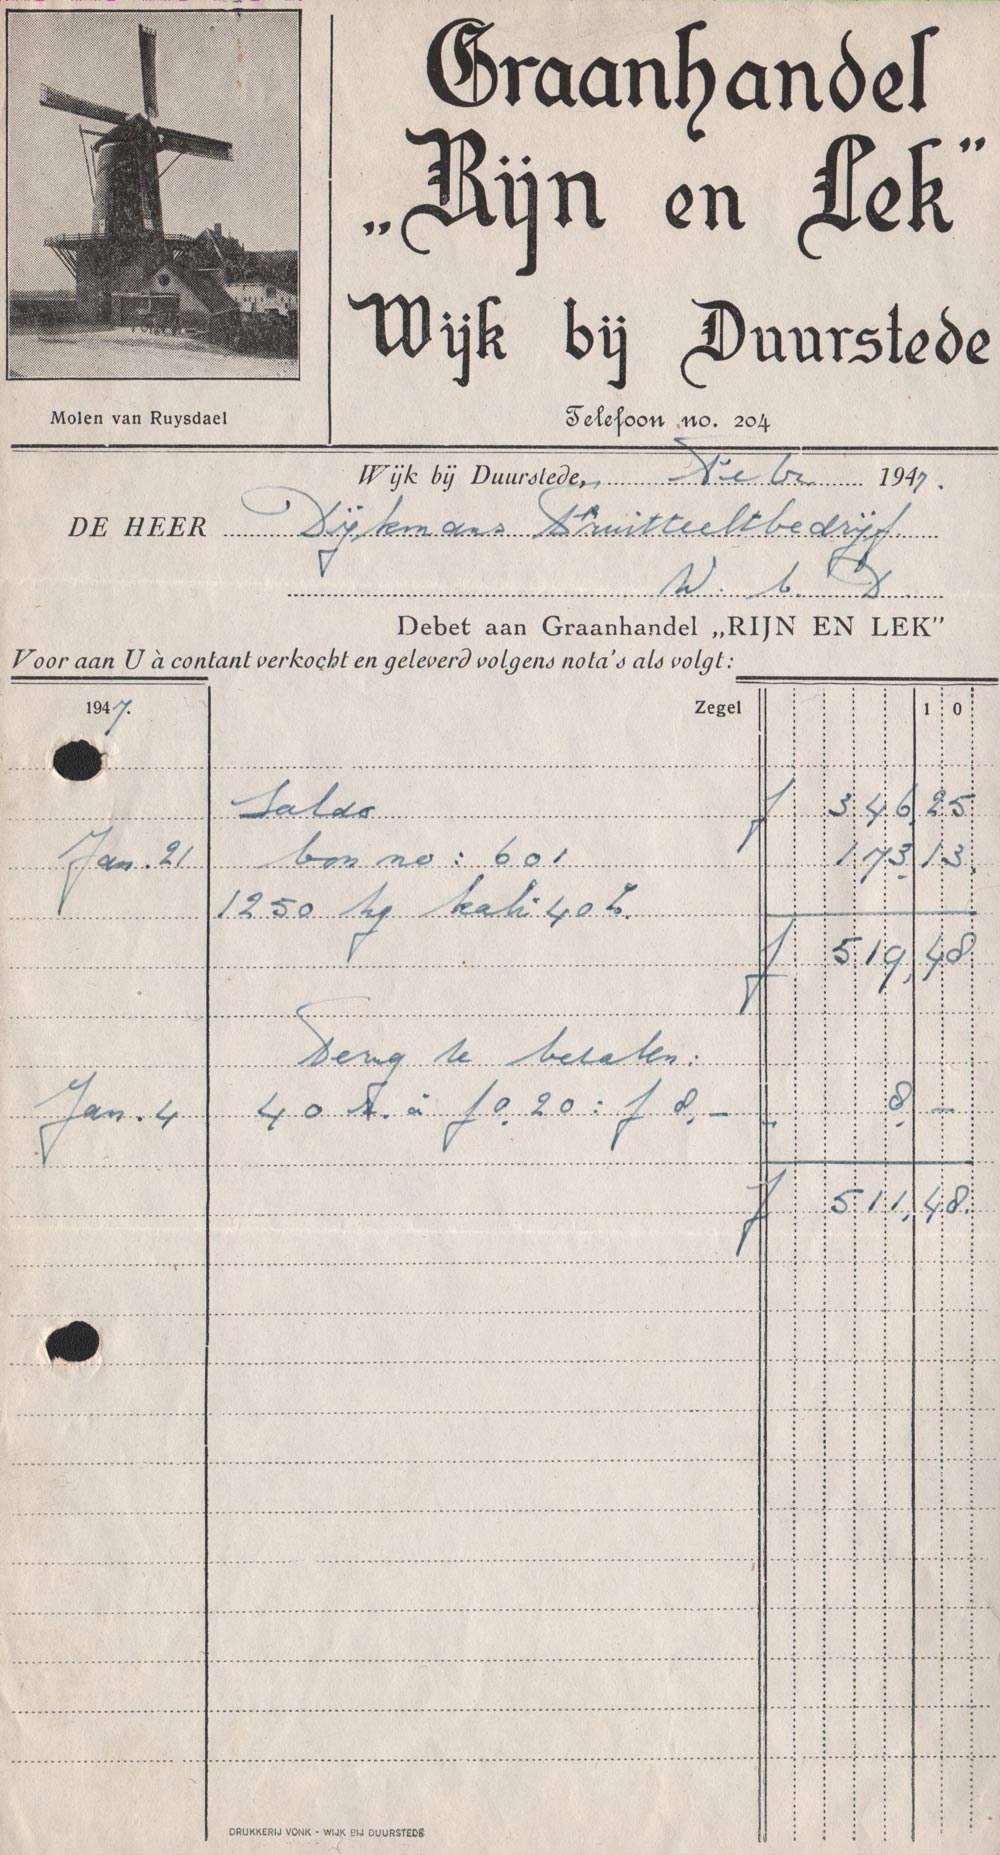 Graanhandel
„Rijn en Lek”
Wijk bij Duurstede
Molen van Ruysdael
Telefoon no. 204
Wijk bij Duurstede, Febr. 1947.
DE HEER Dijkmans Fruitteeltbedrijf.
W. b. D.
Debet aan Graanhandel „RIJN EN LEK”
Voor aan U à contant verkocht en geleverd volgens nota's als volgt:
1947. Zegel 10
Saldo f 346,25
Jan. 21 bon no: 601 173,13.
1250 kg kali 40%.
f 519,48
Terug te betalen:
Jan. 4 40 à f 0,20 : f 8,– 8,–
f 511,48.
DRUKKERIJ VONK - WIJK BIJ DUURSTEDE